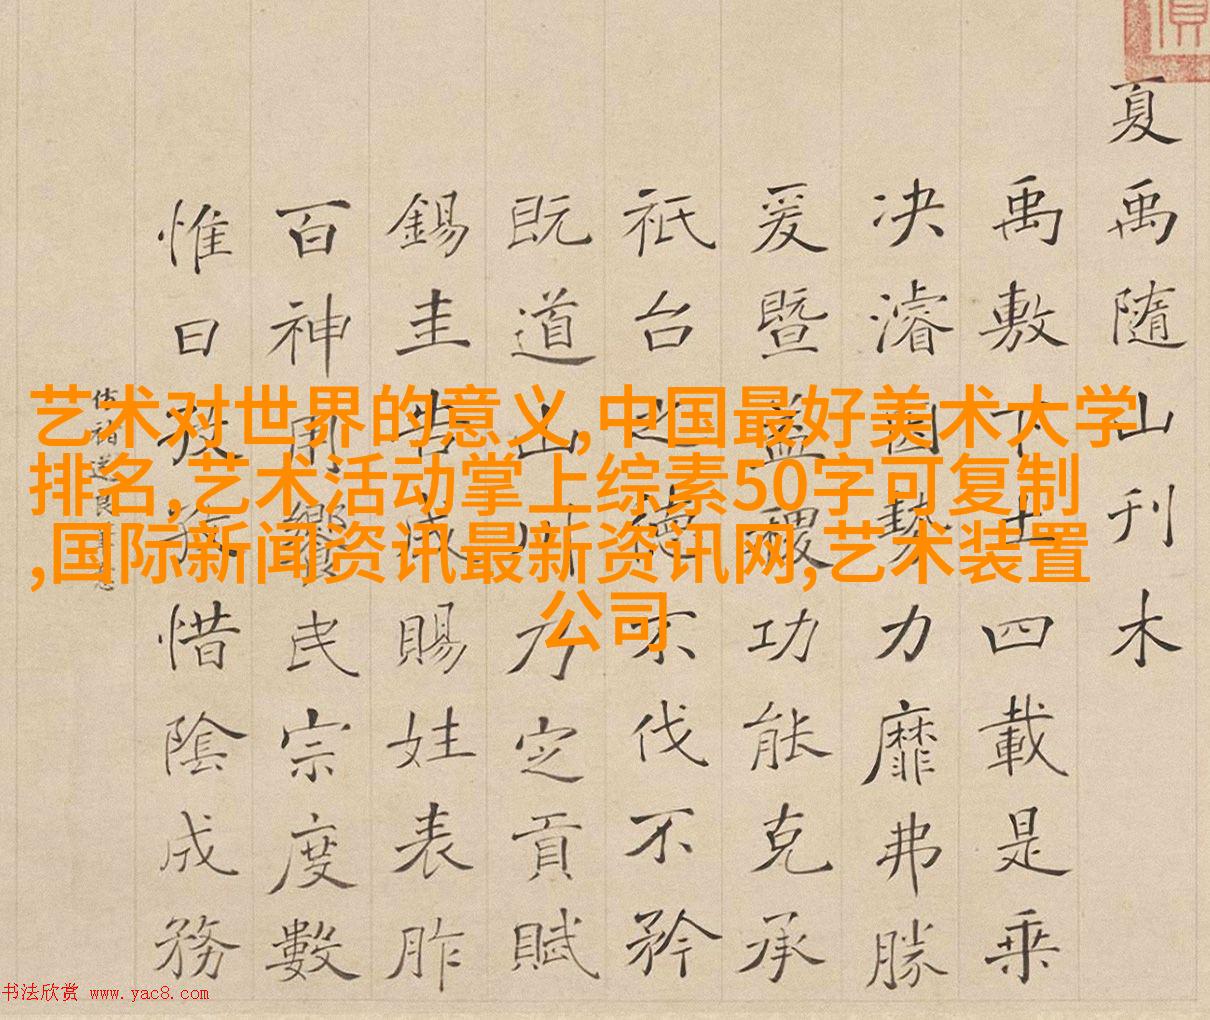 夏禹随山刊木
禹敷下土四載是乗
决濬因勢力靡弗勝
爰暨益稷功能克承
祇台之德不伐不矜
既道山川乃定貢賦
錫圭告成賜姓表胙
百神用饗民宗度數
惟日孜孜惜陰成務
艺术对世界的意义,中国最好美术大学
排名,艺术活动掌上综素50字可复制
,国际新闻资讯最新资讯网,艺术装置
公司
书法欣赏 www.yac8.com